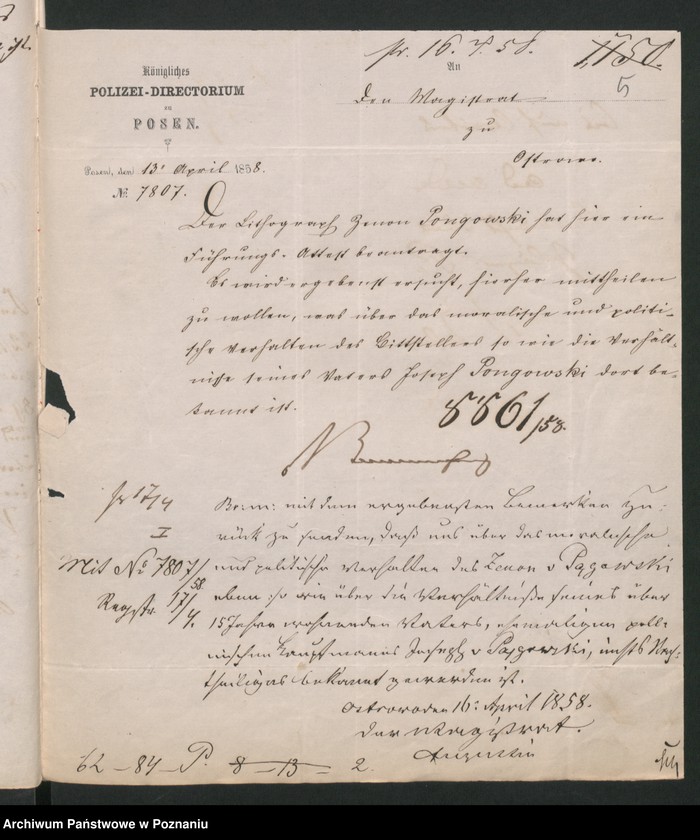 pr. 16. 4. 58.
5
Königliches
POLIZEI-DIRECTORIUM
zu
POSEN.
Posen, den 13. April 1858.
№ 7807.
An
Den Magistrat
zu
Ostrowo.
Der Lithograph Zenon Pongowski hat hier ein
Führungs-Attest beantragt.
Es wird ergebenst ersucht, hierher mittheilen
zu wollen, was über das moralische und politi-
sche Verhalten des Bittstellers so wie die Verhält-
nisse seines Vaters Joseph Pongowski dort be-
kannt ist.
8861/58.
pr 17/4
I
Mit No 7807/58.
Regstr. 17/4.
Br: m: mit dem ergebensten Bemerken zu-
rück zu senden, daß uns über das moralische
und politische Verhalten des Zenon v Pągowski
eben so wie über die Verhältniße seines über
15 Jahre wohnenden Vaters, ehemaligen poll-
nischen Hauptmanns Joseph v Pągowski, nichts Nach-
theiliges bekannt geworden ist.
Ostrowo den 16. April 1858.
Der Magistrat.
Augustin
62 - 84 P. 8 - 13 - 2.
Archiwum Państwowe w Poznaniu